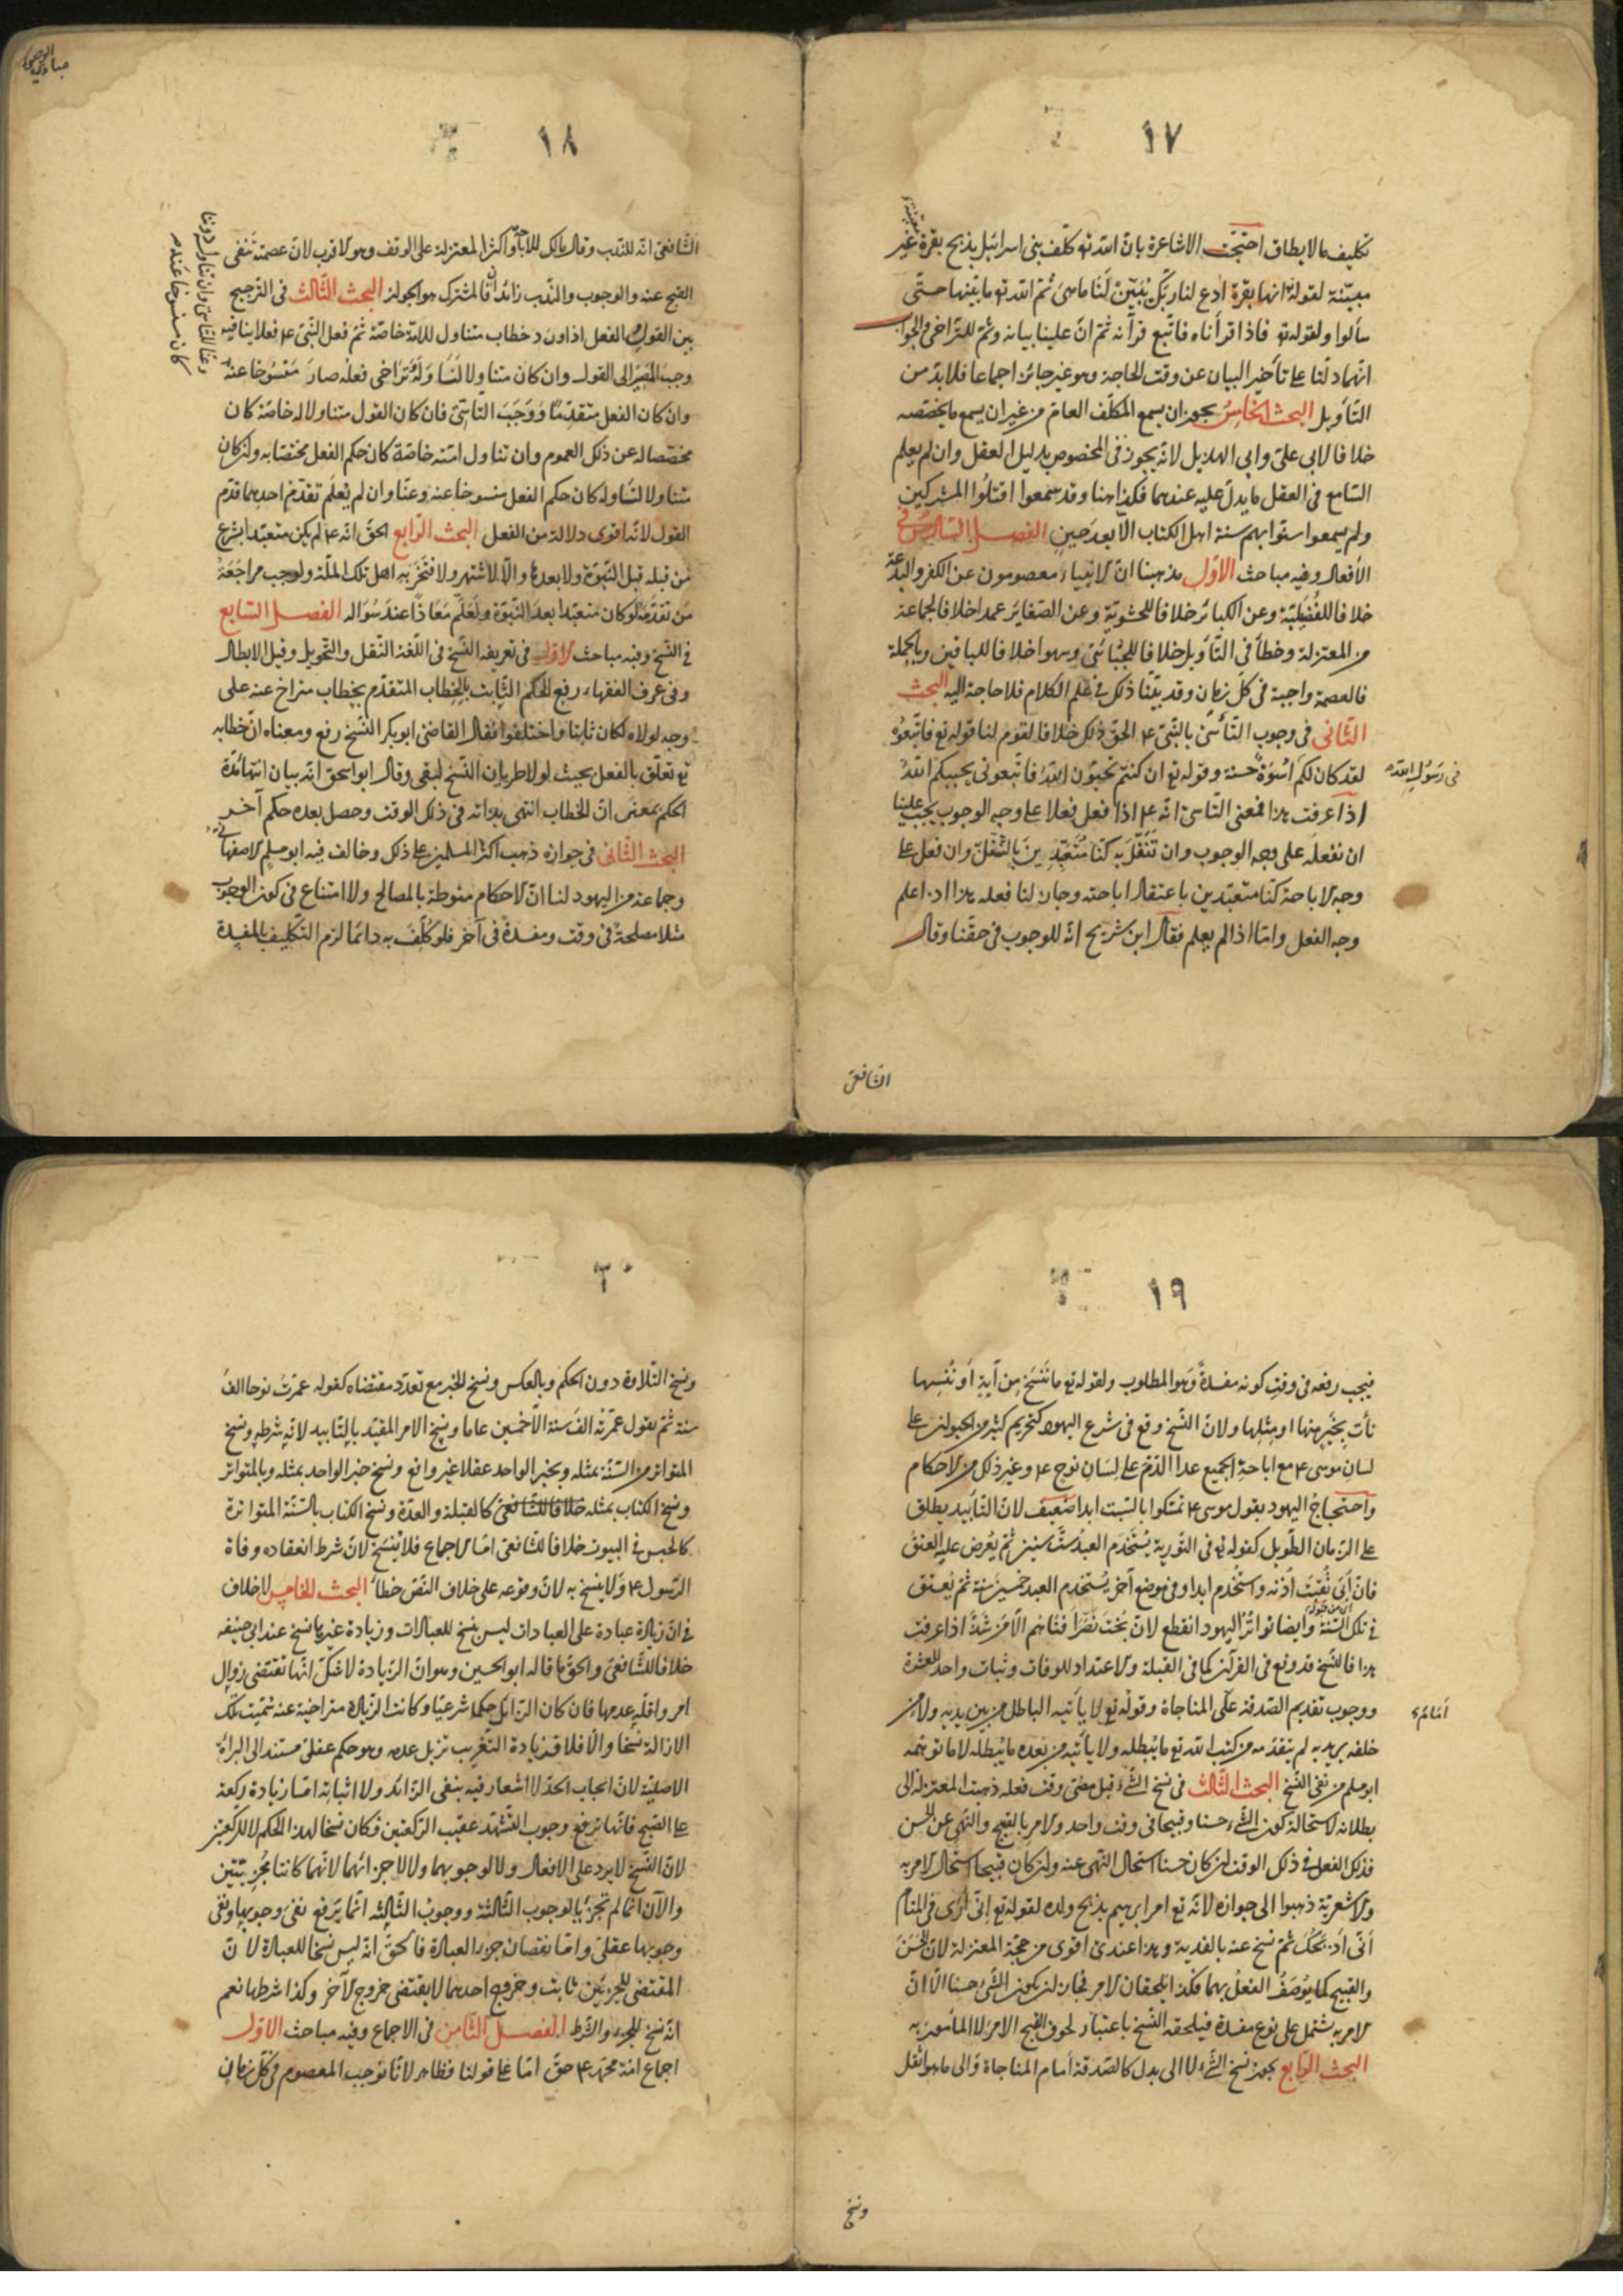 ١٧
تكليف ما لا يطاق احتجت الاشاعرة بان الله تع كلف بنى اسرائيل بذبح بقرة غير
معينة لقوله انها بقرة ادع لنا ربك يبين لنا ما هى ثم الله تع ما بينها حتى
سألوا ولقوله تع فاذا قرأناه فاتبع قرآنه ثم ان علينا بيانه وثم للتراخى والجواب
انهما دلتا على تأخير البيان عن وقت الحاجة وهو غير جائز اجماعا فلا بد من
التأويل البحث الخامس يجوز ان يسمع المكلف العام من غير ان يسمع ما يخصصه
خلافا لابى على وابى الهذيل لانه يجوز فى المخصوص بدليل العقل وان لم يعلم
السامع فى العقل ما يدل عليه عندهما فكذا هنا وقد سمعوا اقتلوا المشركين
ولم يسمعوا سنوا بهم سنة اهل الكتاب الا بعد حين الفصل السادس فى
الأفعال وفيه مباحث الاول مذهبنا ان الانبياء معصومون عن الكفر والبدعة
خلافا للفضيلية وعن الكبائر خلافا للحشوية وعن الصغاير عمدا خلافا لجماعة
من المعتزلة وخطأ فى التأويل خلافا للجبائى وسهوا خلافا للباقين وبالجملة
فالعصمة واجبة فى كل زمان وقد بينا ذلك فى علم الكلام فلا حاجة اليه البحث
الثانى فى وجوب التأسى بالنبى ع الحق ذلك خلافا لقوم لنا قوله تع فاتبعوه
لقد كان لكم اسوة حسنة وقوله تع ان كنتم تحبون الله فاتبعونى يحببكم الله
فى رسول الله
اذا عرفت هذا فمعنى التأسى انه ع اذا فعل فعلا على وجه الوجوب يجب علينا
ان نفعله على وجه الوجوب وان تنفل به كنا متعبدين بالتنفل وان فعل على
وجه الاباحة كنا متعبدين باعتقاد اباحته وجاز لنا فعله هذا اذا علم
وجه الفعل واما اذا لم يعلم فقال ابن شريح انه للوجوب فى حقنا وقال
الشافعى
١٨
الشافعى انه للندب وقال مالك للاباحة واكثر المعتزلة على الوقف وهو الاقرب لان عصمته تنفى
القبح عنه والوجوب والندب زائدان فالمشترك هو الجواز البحث الثالث فى الترجيح
بين القول والفعل اذا ورد خطاب متناول للامة خاصة ثم فعل النبى ع فعلا ينافيه
وجب المصير الى القول وان كان متناولا لنا وله وتراخى فعله صار منسوخا عنه
وان كان الفعل متقدما ووجب التأسى فان كان القول متناولا له خاصة كان
مخصصا له عن ذلك العموم وان تناول امته خاصة كان حكم الفعل مختصا به وان كان
متناولا لنا وله كان حكم الفعل منسوخا عنه وعنا وان لم يعلم تقدم احدهما قدم
القول لانه اقوى دلالة من الفعل البحث الرابع الحق انه ع لم يكن متعبدا بشرع
من قبله قبل النبوة ولا بعدها والا لاشتهر ولافتخر به اهل تلك الملة ولوجب مراجعة
من تقدمه لو كان متعبدا بعد النبوة ولعلم معاذا عند سؤاله الفصل السابع
فى النسخ وفيه مباحث الاول فى تعريفه النسخ فى اللغة النقل والتحويل وقيل الابطال
وفى عرف الفقهاء رفع الحكم الثابت بالخطاب المتقدم بخطاب متراخ عنه على
وجه لولاه لكان ثابتا واختلفوا فقال القاضى ابو بكر النسخ رفع ومعناه ان خطابه
تع تعلق بالفعل بحيث لولا طريان النسخ لبقى وقال ابو اسحق انه بيان انتهاء مدة
الحكم بمعنى ان الخطاب انتهى بذاته فى ذلك الوقت وحصل بعده حكم آخر
البحث الثانى فى جوازه ذهب اكثر المسلمين على ذلك وخالف فيه ابو مسلم الاصفهانى
وجماعة من اليهود لنا ان الاحكام منوطة بالمصالح ولا امتناع فى كون الوجوب
مثلا مصلحة فى وقت ومفسدة فى آخر فلو كلف به دائما لزم التكليف بالمفسدة
١٩
فيجب رفعه فى وقت كونه مفسدة وهو المطلوب ولقوله تع ما ننسخ من آية او ننسها
نأت بخير منها او مثلها ولان النسخ وقع فى شرع اليهود كتحريم كثير من الحيوان على
لسان موسى ع مع اباحة الجميع عدا الدم على لسان نوح ع وغير ذلك من الاحكام
واحتجاج اليهود بقول موسى ع تمسكوا بالسبت ابدا ضعيف لان التأبيد يطلق
على الزمان الطويل كقوله تع فى التورية يستخدم العبد ست سنين ثم يعرض عليه العتق
فان ابى ثقبت اذنه واستخدم ابدا وفى موضع آخر يستخدم العبد خمسين سنة ثم يعتق
فى تلك السنة وايضا تواتر اليهود انقطع لان بخت نصر افناهم الا من شذ اذا عرفت
هذا فالنسخ قد وقع فى القرآن كما فى القبلة والاعتداد للوفات وثبات واحد للعشرة
ووجوب تقديم الصدقة على المناجاة وقوله تع لا يأتيه الباطل من بين يديه ولا من
امام
خلفه يريد به لم يتقدمه من كتب الله تع ما يبطله ولا يأتيه من بعده ما يبطله لا ما توهمه
ابو مسلم من نفى النسخ البحث الثالث فى نسخ الشىء قبل مضى وقت فعله ذهبت المعتزلة الى
بطلانه لاستحالة كون الشىء حسنا وقبيحا فى وقت واحد والامر بالقبيح والنهى عن الحسن
فذلك الفعل فى ذلك الوقت ان كان حسنا استحال النهى عنه وان كان قبيحا استحال الامر به
والاشعرية ذهبوا الى جوازه لانه تع امر ابرهيم بذبح ولده لقوله تع انى ارى فى المنام
انى اذبحك ثم نسخ عنه بالفدية وهذا عندى اقوى من حجة المعتزلة لان الحسن
والقبيح كما يوصف الفعل بهما فكذا يلحقان الامر فجاز ان يكون الشىء حسنا الا ان
الامر به يشتمل على نوع مفسدة فيلحقه النسخ باعتبار لحوق القبح الامر لا المأمور به
البحث الرابع يجوز نسخ الشىء لا الى بدل كالصدقة امام المناجاة والى ما هو اثقل
ونسخ
٢٠
ونسخ التلاوة دون الحكم وبالعكس ونسخ الخبر مع تعدد مقتضاه كقوله عمرت نوحا الف
سنة ثم يقول عمرته الف سنة الا خمسين عاما ونسخ الامر المقيد بالتأبيد لانه شرطه ونسخ
المتواتر من السنة بمثله وبخبر الواحد عقلا غير واقع ونسخ خبر الواحد بمثله وبالمتواتر
ونسخ الكتاب بمثله خلافا للشافعى كالقبلة والعدة ونسخ الكتاب بالسنة المتواترة
كالحبس فى البيوت خلافا للشافعى اما الاجماع فلا ينسخ لان شرط انعقاده وفاة
الرسول ع ولا ينسخ به لان وقوعه على خلاف النص خطأ البحث الخامس لا خلاف
فى ان زيادة عبادة على العبادات ليس بنسخ للعبادات وزيادة غيرها نسخ عند ابى حنيفه
خلافا للشافعى والحق ما قاله ابو الحسين وهو ان الزيادة لا شك انها تقتضى زوال
امر واقله عدمها فان كان الزايل حكما شرعيا وكانت الزيادة متراخية عنه سميت تلك
الازالة نسخا والا فلا فزيادة التغريب تزيل عدمه وهو حكم عقلى مستند الى البراءة
الاصلية لان ايجاب الحد لا اشعار فيه بنفى الزائد ولا اثباته اما زيادة ركعة
على الصبح فانها ترفع وجوب التشهد عقيب الركعتين فكان نسخا لهذا الحكم لا للركعتين
لان النسخ لا يرد على الافعال ولا لوجوبهما ولا لاجزائهما لانهما كانتا مجزيتين
والآن انما لم تجزيا لوجوب الثالثة ووجوب الثالثة انما يرفع نفى وجوبها ونفى
وجوبها عقلى واما نقصان جزء العبادة فالحق انه ليس نسخا للعبادة لان
المقتضى للجزئين ثابت وخروج احدهما لا يقتضى خروج الآخر وكذا شرطها نعم
انه نسخ للجزء والشرط الفصل الثامن فى الاجماع وفيه مباحث الاول
اجماع امة محمد ع حق اما على قولنا فظاهر لانا نوجب المعصوم فى كل زمان